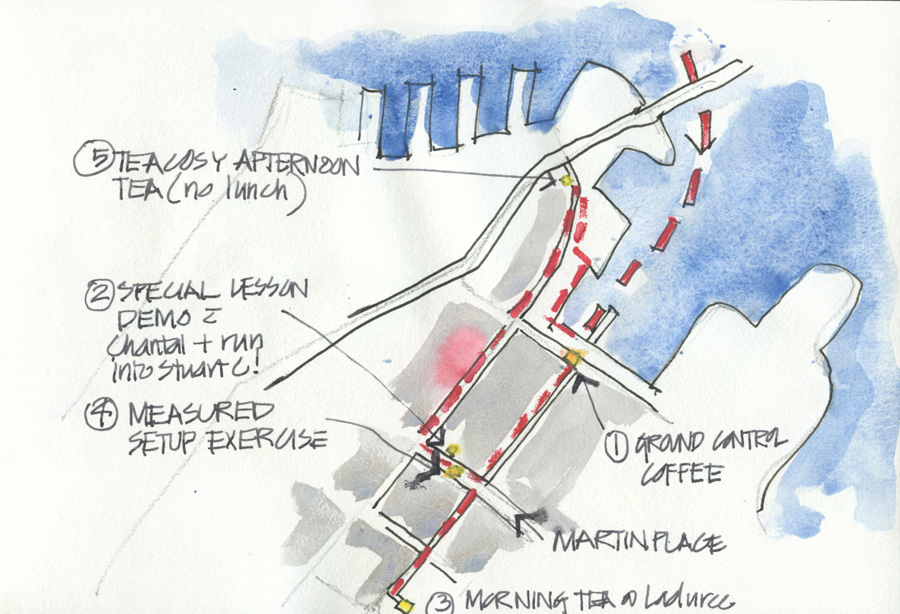 ⑤ TEACOSY AFTERNOON
TEA (no lunch)
② SPECIAL LESSON
DEMO c̄
Chantal + run
into Stuart C!
④ MEASURED
SETUP EXERCISE
① GROUND CONTROL
COFFEE
MARTIN PLACE
③ MORNING TEA @ Laduree